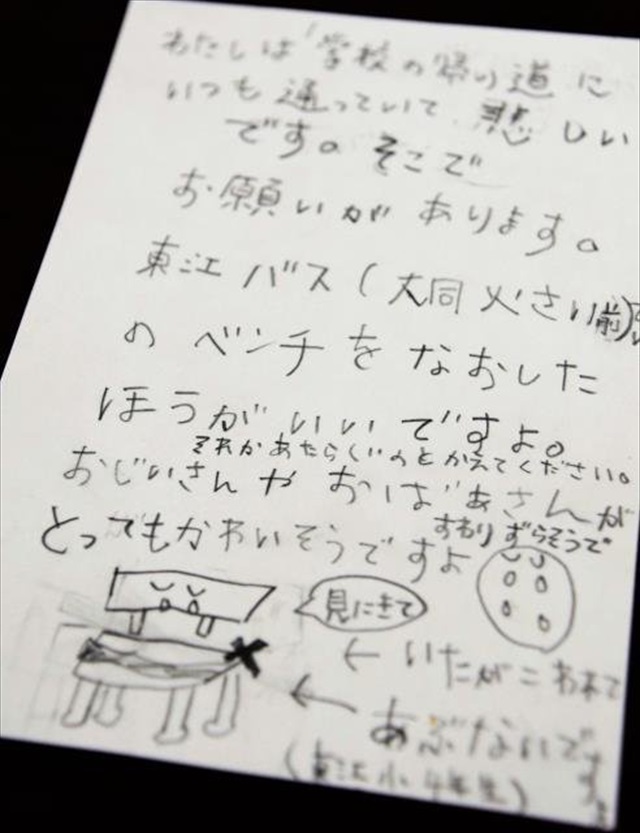 わたしは学校の帰り道に
いつも通っていて悲しい
です。そこで
お願いがあります。
東江バス(大同火さい前)
のベンチをなおした
ほうがいいですよ。
それかあたらしいのとかえてください。
おじいさんやおばあさんが
すわりずらそうで
とってもかわいそうですよ
見にきて
← いたがこわれて
← あぶないです。
(東江小4年生)